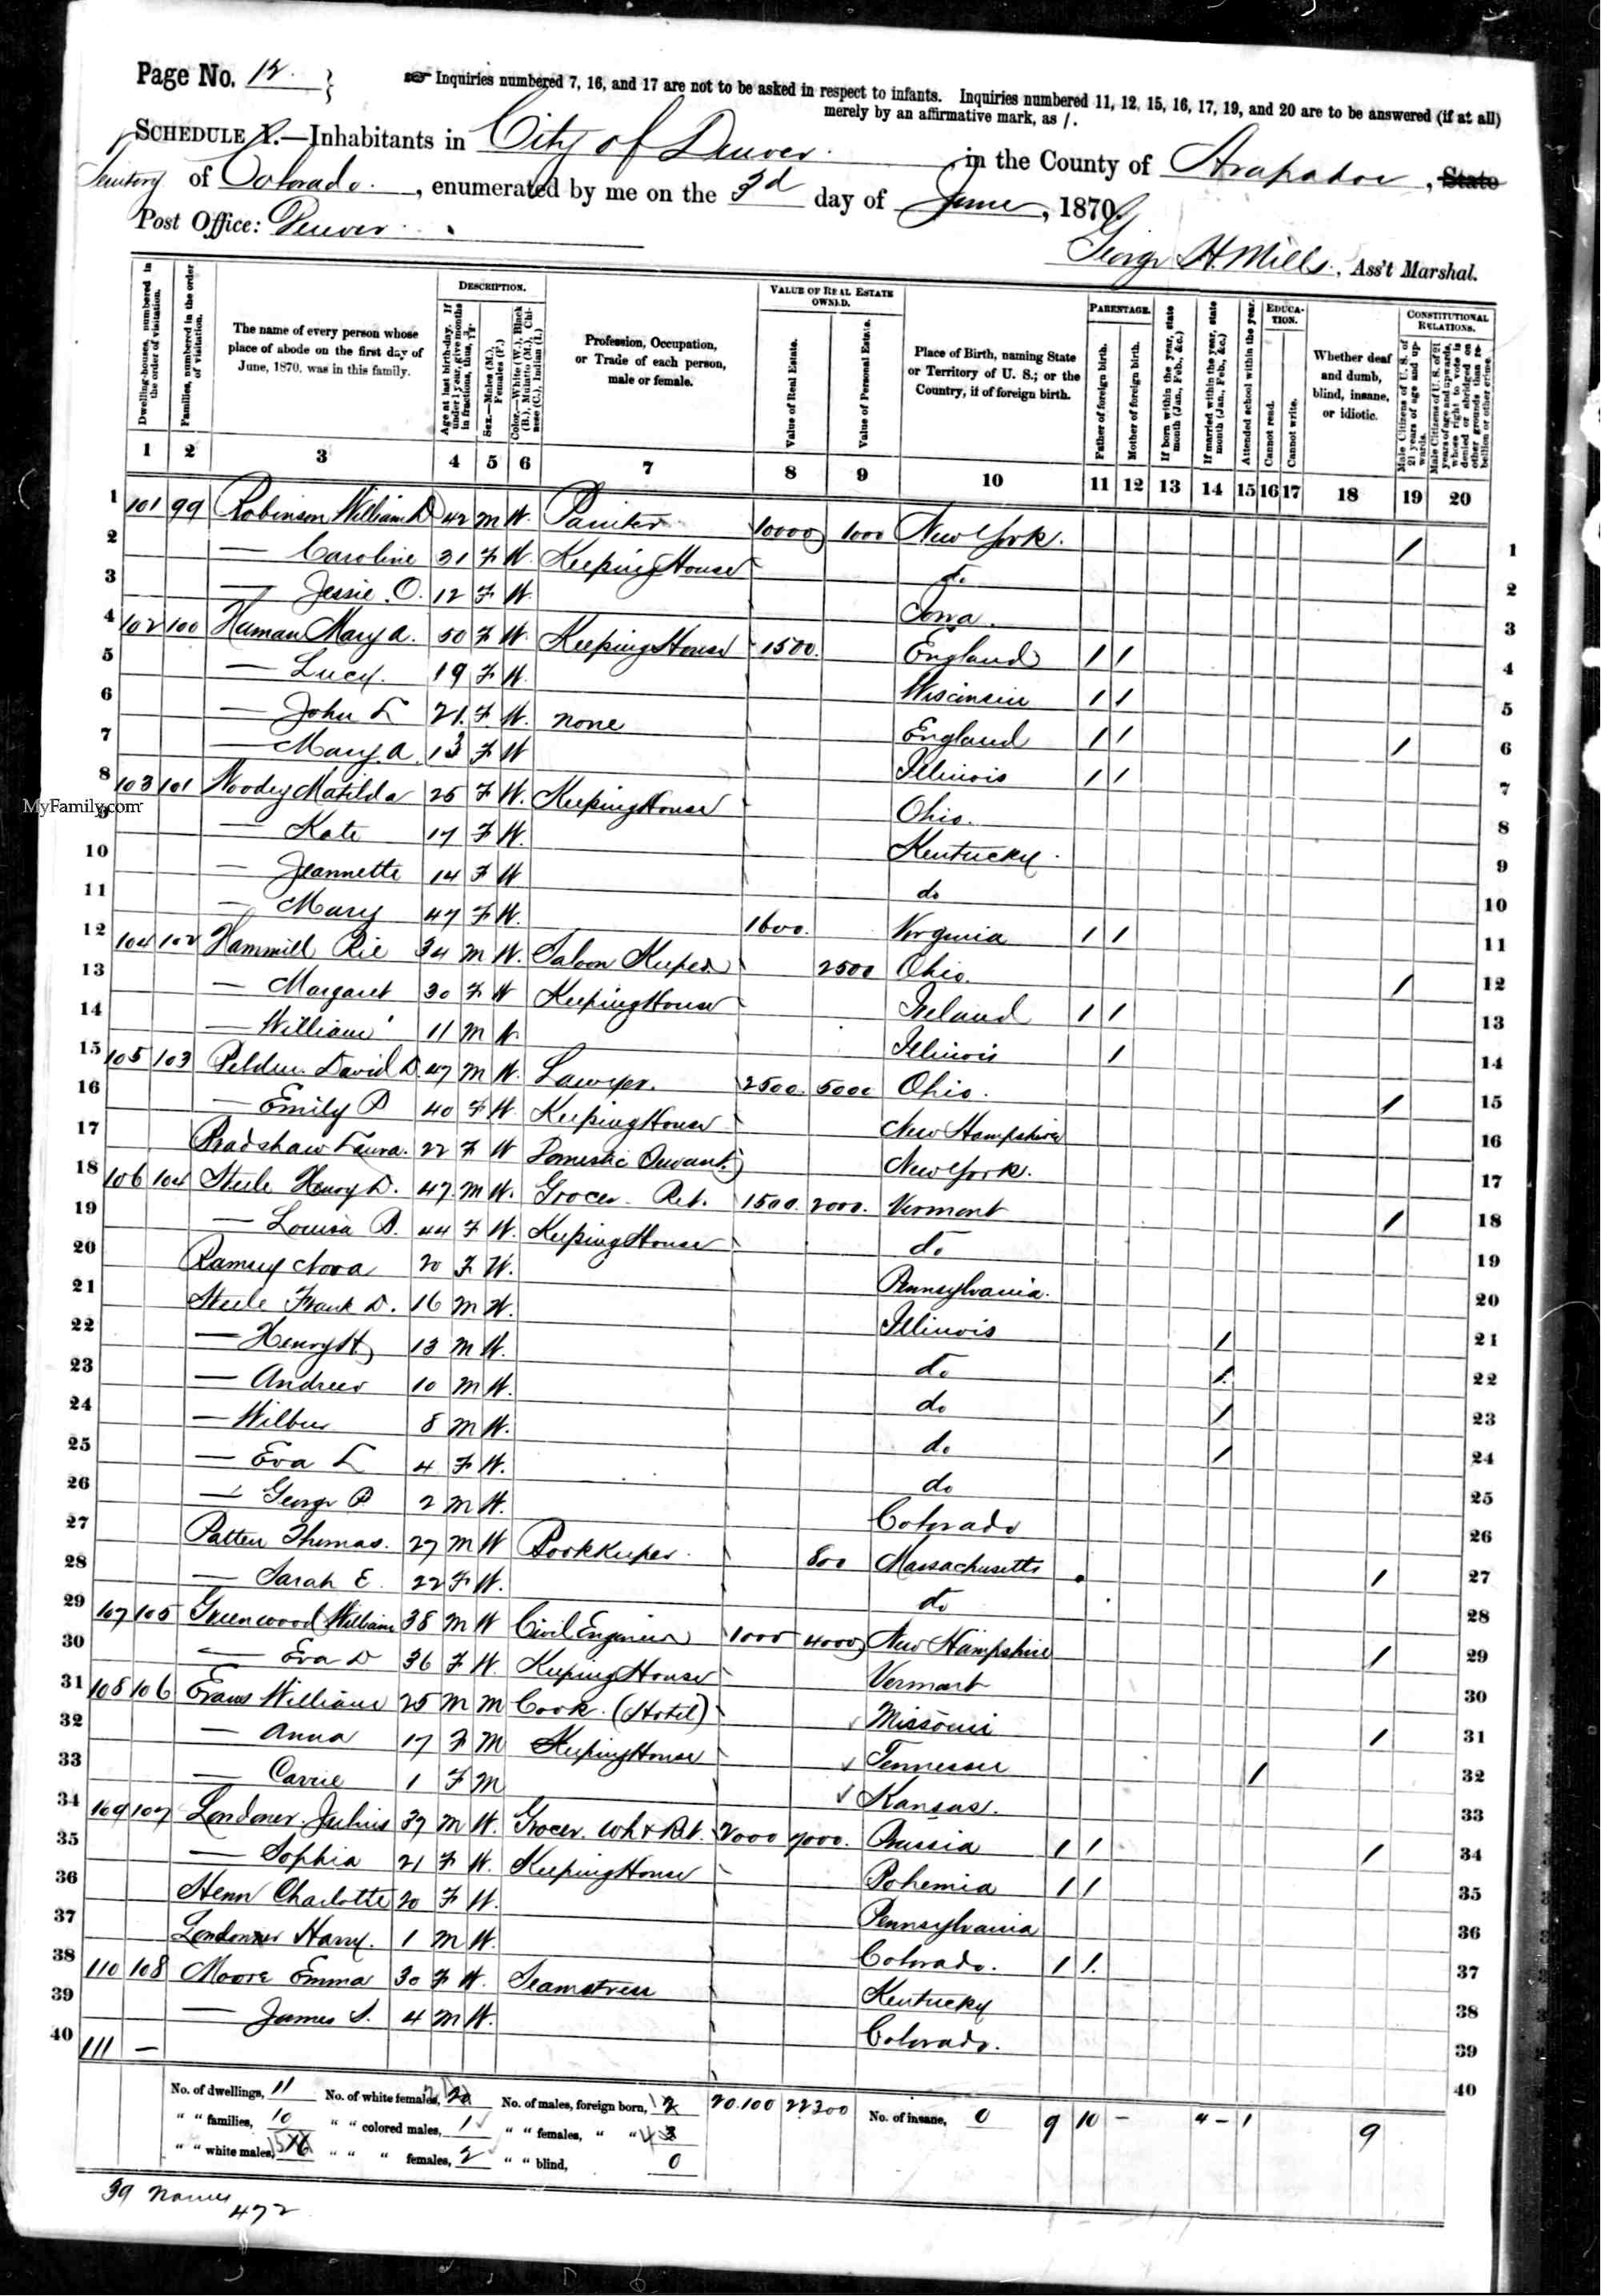 Page No. 12.
Inquiries numbered 7, 16, and 17 are not to be asked in respect to infants. Inquiries numbered 11, 12, 15, 16, 17, 19, and 20 are to be answered (if at all)
merely by an affirmative mark, as /.
SCHEDULE 1.—Inhabitants in City of Denver. in the County of Arapahoe, State
Territory of Colorado, enumerated by me on the 3d day of June, 1870.
Post Office: Denver
George H. Mills, Ass't Marshal.
Dwelling-houses, numbered in the order of visitation.
Families, numbered in the order of visitation.
The name of every person whose place of abode on the first day of June, 1870, was in this family.
DESCRIPTION.
Age at last birth-day. If under 1 year, give months in fractions, thus,
Sex.—Males (M.), Females (F.)
Color.—White (W.), Black (B.), Mulatto (M.), Chinese (C.), Indian (I.)
Profession, Occupation, or Trade of each person, male or female.
VALUE OF REAL ESTATE OWNED.
Value of Real Estate.
Value of Personal Estate.
Place of Birth, naming State or Territory of U. S.; or the Country, if of foreign birth.
PARENTAGE.
Father of foreign birth.
Mother of foreign birth.
If born within the year, state month (Jan., Feb., &c.)
If married within the year, state month (Jan., Feb., &c.)
Attended school within the year.
EDUCATION.
Cannot read.
Cannot write.
Whether deaf and dumb, blind, insane, or idiotic.
CONSTITUTIONAL RELATIONS.
Male Citizens of U. S. of 21 years of age and upwards.
Male Citizens of U. S. of 21 years of age and upwards, whose right to vote is denied or abridged on other grounds than rebellion or other crime.
1 2 3 4 5 6 7 8 9 10 11 12 13 14 15 16 17 18 19 20
1 101 99 Robinson William D 42 M W. Painter 10000 1000 New York. / 1
2 — Caroline 31 F W. Keeping House do 2
3 — Jessie O. 12 F W. Iowa. 3
4 102 100 Haman Mary A. 50 F W. Keeping House 1500. England / / 4
5 — Lucy. 19 F W. Wisconsin / / 5
6 — John L 21. F W. none England / / / 6
7 — Mary A. 13 F W Illinois / / 7
8 103 101 Woodey Matilda 25 F W. Keeping House Ohio. 8
MyFamily.com
9 — Kate 17 F W. Kentucky. 9
10 — Jeannette 14 F W do 10
11 — Mary 47 F W. 1600. Virginia / / 11
12 104 102 Hammill Rie 34 M W. Saloon Keeper 2500 Ohio. / 12
13 — Margaret 30 F W Keeping House Ireland / / 13
14 — William 11 M W. Illinois / 14
15 105 103 Belden David D 47 M W. Lawyer. 2500. 5000 Ohio. / 15
16 — Emily B 40 F W. Keeping House New Hampshire 16
17 Bradshaw Laura. 22 F W Domestic Servant. New York. 17
18 106 104 Steele Henry D. 47. M W. Grocer. Ret. 1500. 2000. Vermont / 18
19 — Louisa B. 44 F W. Keeping House do 19
20 Ramsey Nora 20 F W. Pennsylvania. 20
21 Steele Frank D. 16 M W. Illinois / 21
22 — Henry H 13 M W. do / 22
23 — Andrew 10 M W. do / 23
24 — Wilbur 8 M W. do / 24
25 — Eva L 4 F W. do 25
26 — George B 2 M W. Colorado 26
27 Patten Thomas. 27 M W Bookkeeper. 800 Massachusetts / 27
28 — Sarah E. 22 F W. do 28
29 107 105 Greenwood William 38 M W Civil Engineer 1000 4000 New Hampshire / 29
30 — Eva D 36 F W. Keeping House Vermont 30
31 108 106 Evans William 25 M M Cook (Hotel) Missouri / 31
32 — Anna 17 F M Keeping House Tennessee / 32
33 — Carrie 1 F M Kansas. 33
34 109 107 Londoner Julius 37 M W. Grocer. Wh & Ret. 2000 7000. Prussia / / / 34
35 — Sophia 21 F W. Keeping House Bohemia / / 35
36 Henn Charlotte 20 F W. Pennsylvania 36
37 Londoner Harry. 1 M W. Colorado. / / 37
38 110 108 Moore Emma 30 F W. Seamstress Kentucky 38
39 — James S. 4 M W. Colorado. 39
40 111 — 40
No. of dwellings, 11 No. of white females, No. of males, foreign born, 20.100 22300 No. of insane, 0 9 10 - 4 - 1 9
" " families, 10 " " colored males, 1 " " females, "
" " white males, " " " females, 2 " " blind, 0
39 Names
472